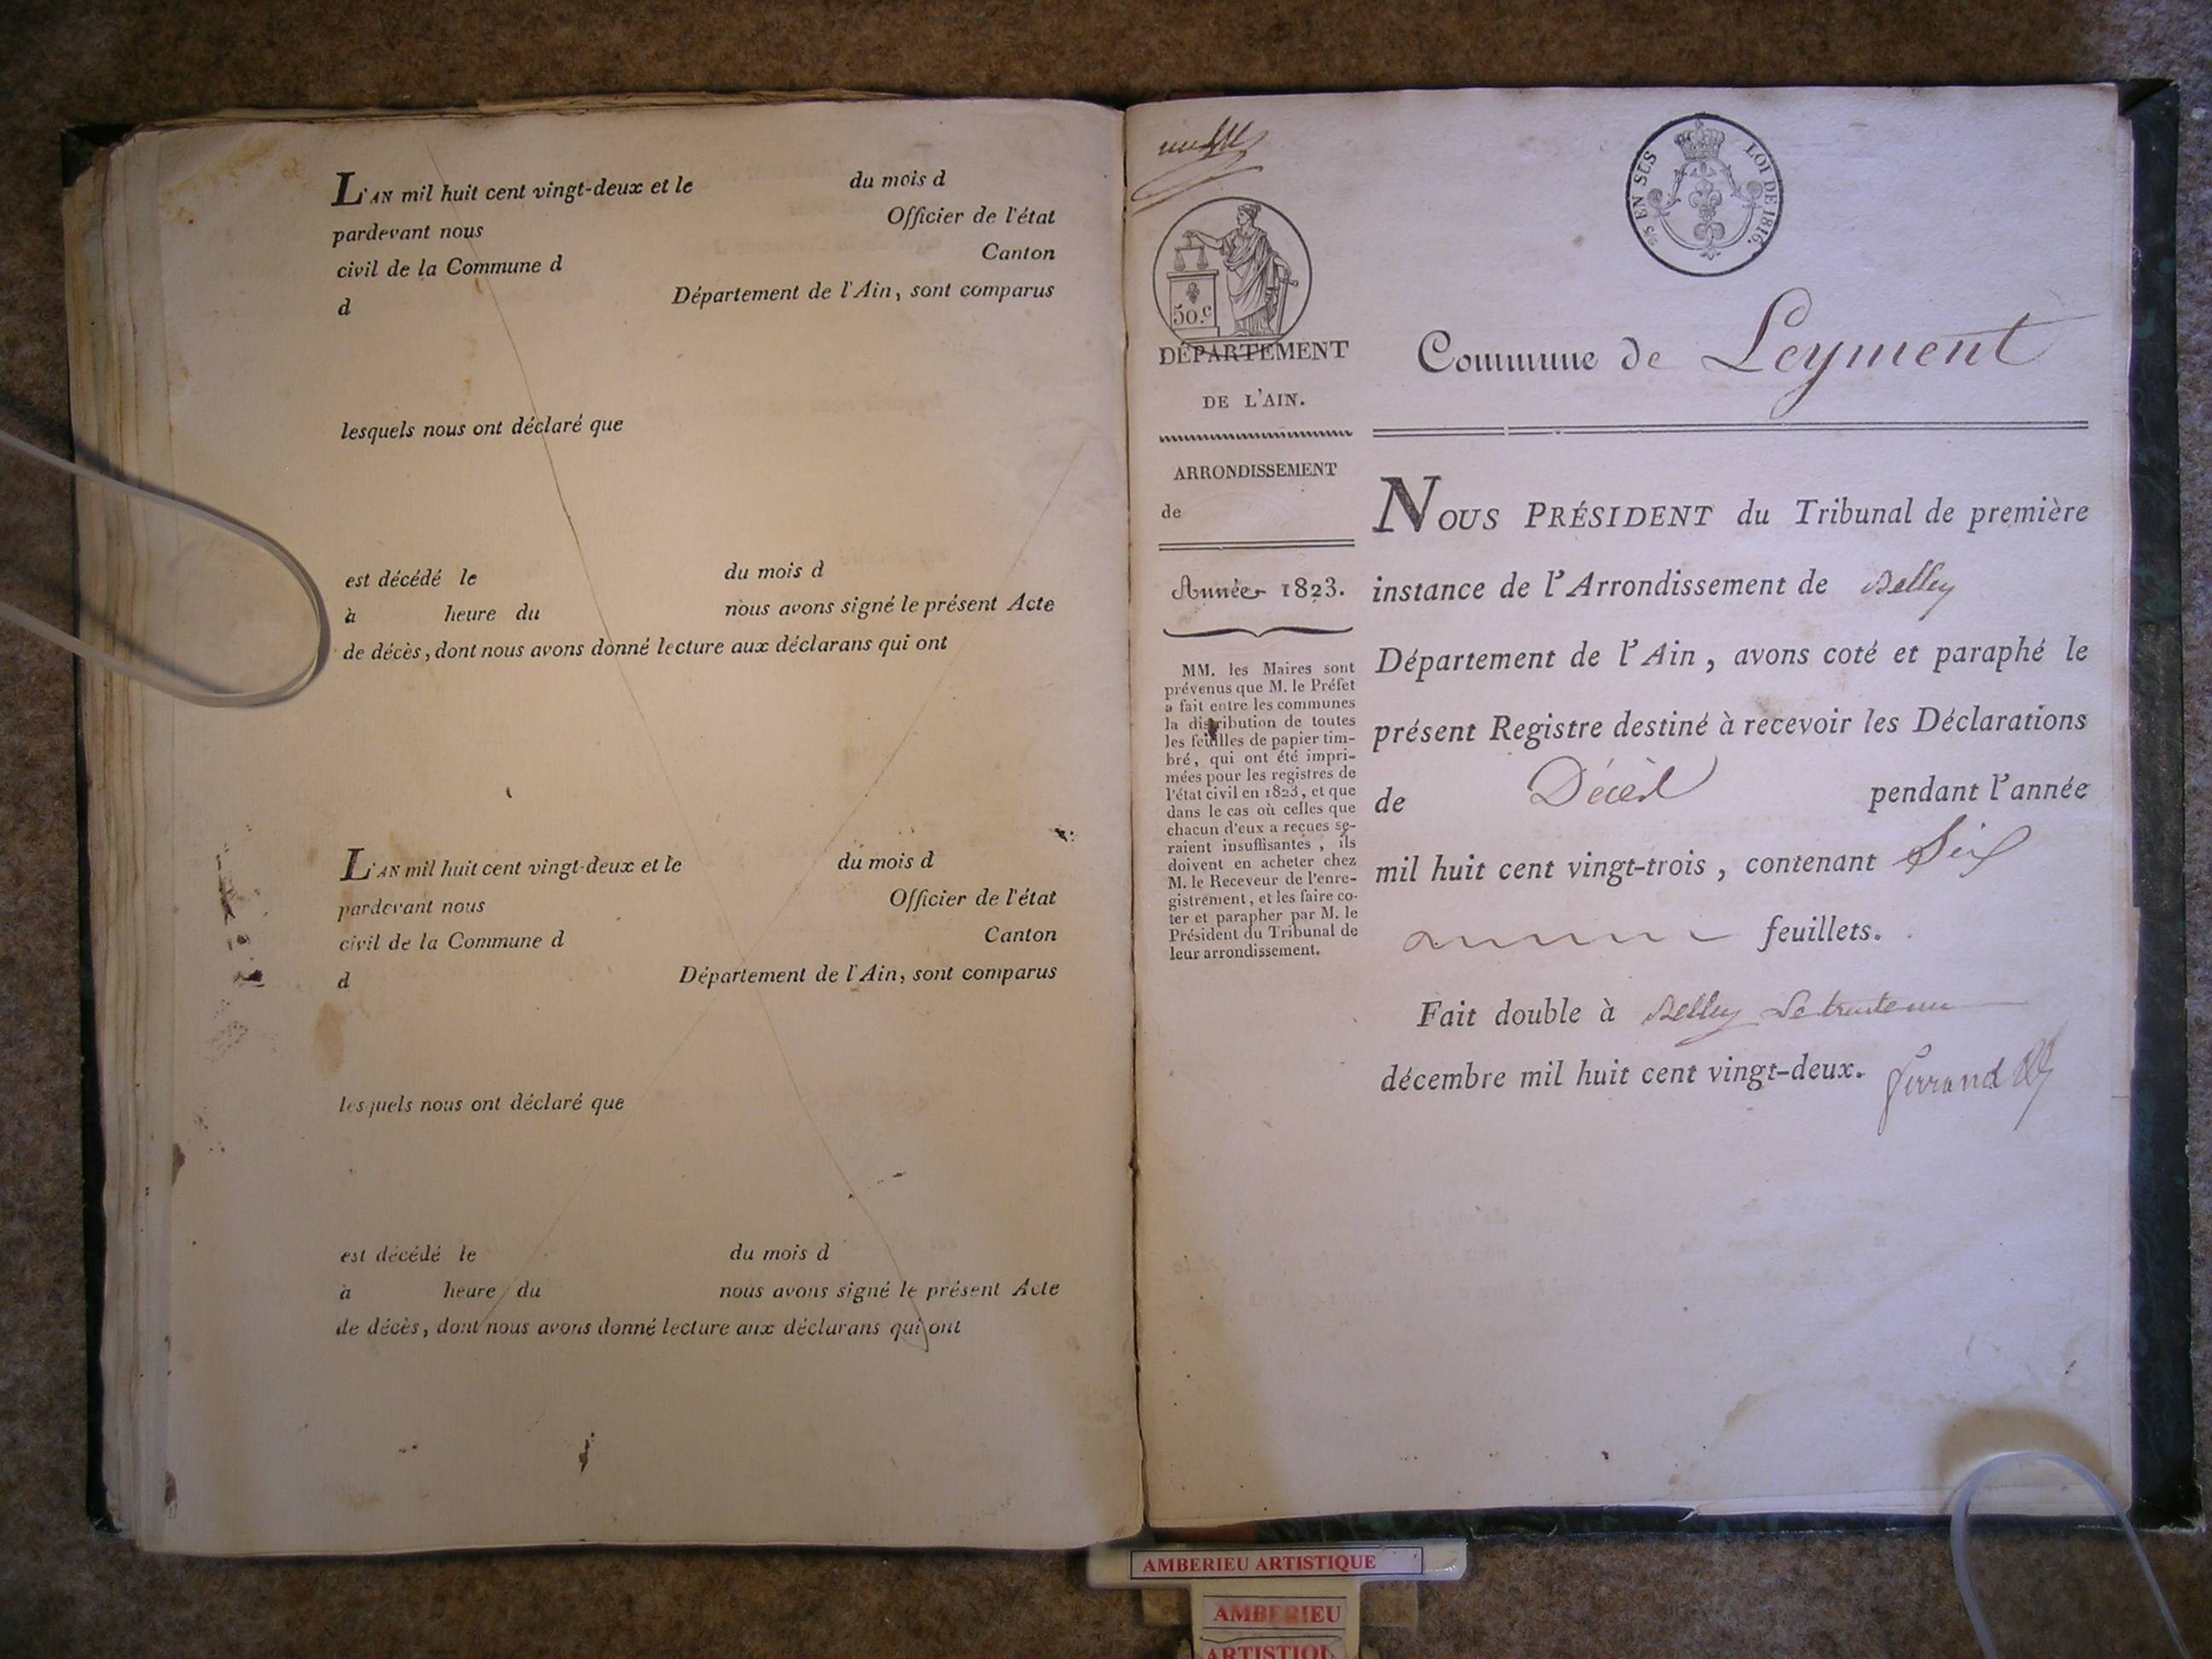 L'AN mil huit cent vingt-deux et le du mois d
pardevant nous Officier de l'état
civil de la Commune d Canton
d Département de l'Ain, sont comparus
lesquels nous ont déclaré que
est décédé le du mois d
à heure du nous avons signé le présent Acte
de décès, dont nous avons donné lecture aux déclarans qui ont
L'AN mil huit cent vingt-deux et le du mois d
pardevant nous Officier de l'état
civil de la Commune d Canton
d Département de l'Ain, sont comparus
lesquels nous ont déclaré que
est décédé le du mois d
à heure du nous avons signé le présent Acte
de décès, dont nous avons donné lecture aux déclarans qui ont
50.c
DÉPARTEMENT
DE L'AIN.
ARRONDISSEMENT
de
Année 1823.
MM. les Maires sont
prévenus que M. le Préfet
a fait entre les communes
la distribution de toutes
les feuilles de papier tim-
bré, qui ont été impri-
mées pour les registres de
l'état civil en 1823, et que
dans le cas où celles que
chacun d'eux a reçues se-
raient insuffisantes, ils
doivent en acheter chez
M. le Receveur de l'enre-
gistrement, et les faire co-
ter et parapher par M. le
Président du Tribunal de
leur arrondissement.
EN SUS LOI DE 1816.
Commune de Leyment
NOUS PRÉSIDENT du Tribunal de première
instance de l'Arrondissement de Belley
Département de l'Ain, avons coté et paraphé le
présent Registre destiné à recevoir les Déclarations
de Décès pendant l'année
mil huit cent vingt-trois, contenant Six
feuillets.
Fait double à Belley Le trente un
décembre mil huit cent vingt-deux. Ferrand
AMBERIEU ARTISTIQUE
AMBERIEU
ARTISTIQU